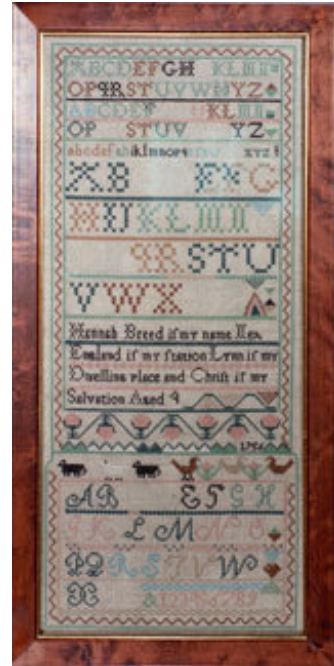 ABCDEFGH KLM
OPQRSTUVWXYZ
ABCDEF KLM
OP STUV YZ
abcdef hiklmnopq xyz
AB EFG
HIJKLM
QRSTU
VWX
Hannah Breed iſ my name New
England iſ my ſtation Lynn iſ my
Dwelling place and Chriſt iſ my
Salvation Aged 9
AB EFGH
IK L M N O
PQ R S T V W
X
&123456789